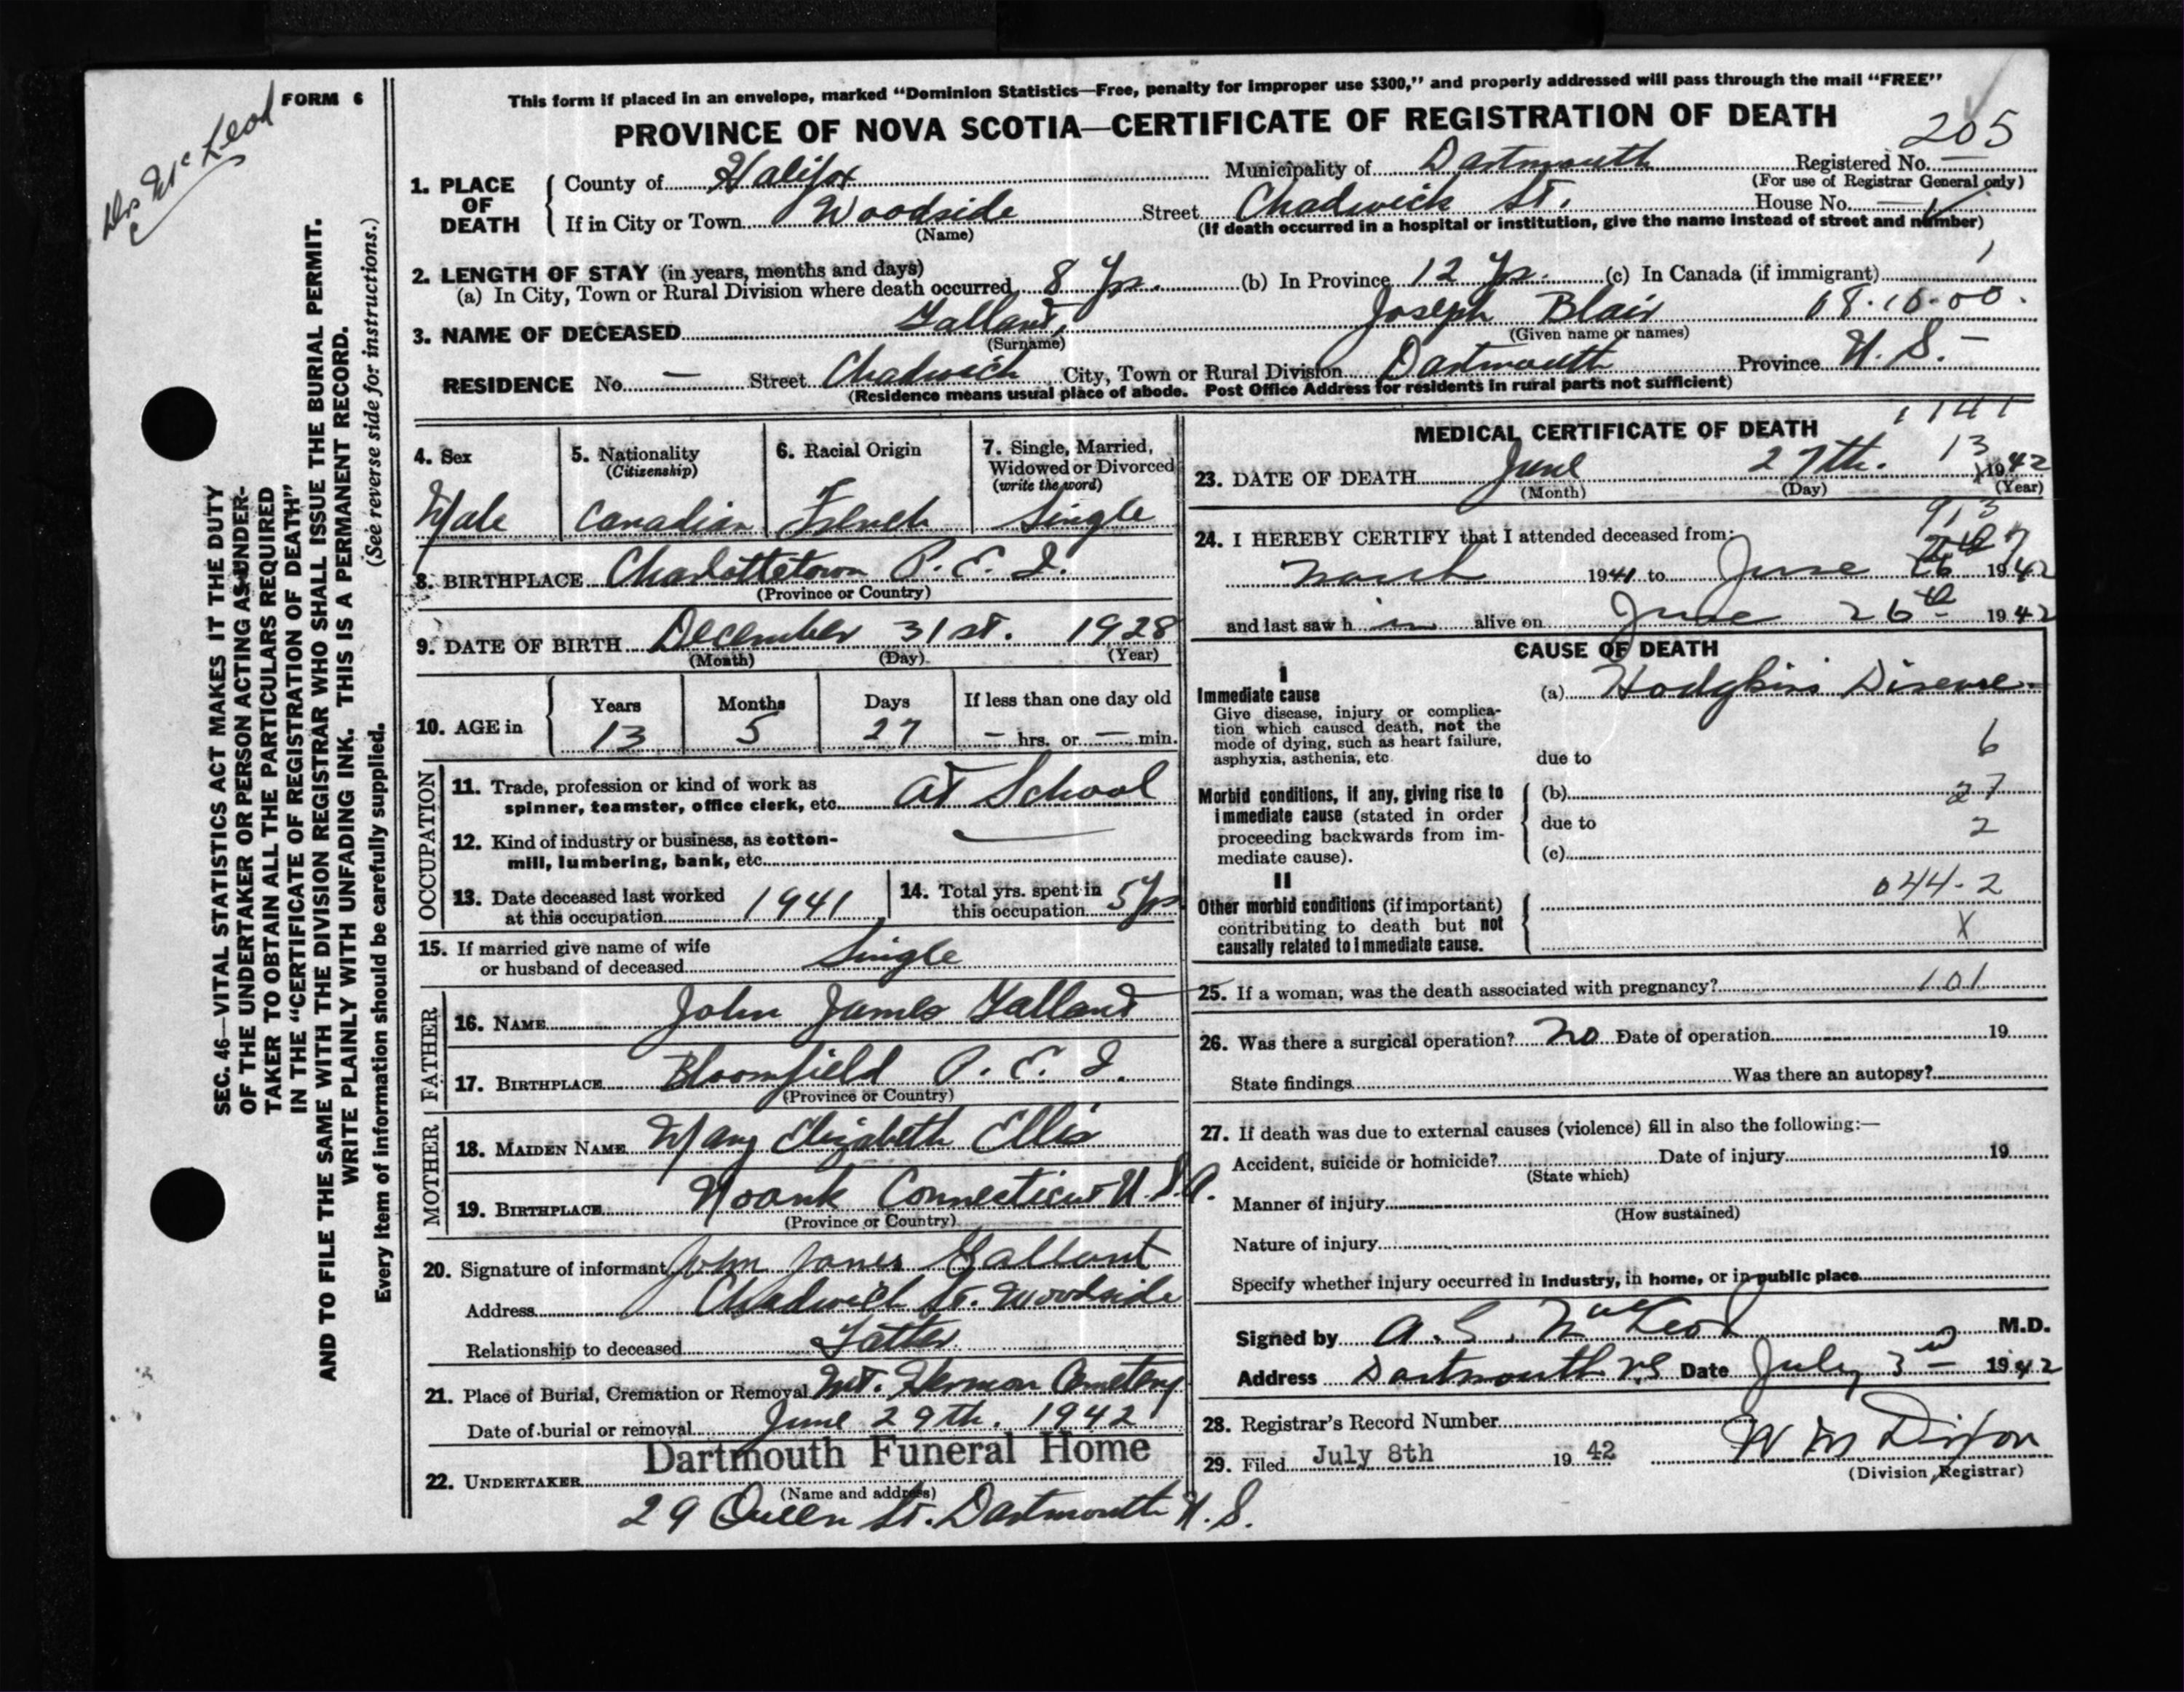 This form if placed in an envelope, marked “Dominion Statistics—Free, penalty for improper use $300,” and properly addressed will pass through the mail “FREE”
FORM 6
Drs McLeod
PROVINCE OF NOVA SCOTIA—CERTIFICATE OF REGISTRATION OF DEATH
205
1. PLACE OF DEATH
County of Halifax Municipality of Dartmouth Registered No.
(For use of Registrar General only)
If in City or Town Woodside Street Chadwick St. House No. —
(Name) (If death occurred in a hospital or institution, give the name instead of street and number)
2. LENGTH OF STAY (in years, months and days)
(a) In City, Town or Rural Division where death occurred 8 Yrs. (b) In Province 12 Yrs. (c) In Canada (if immigrant)
3. NAME OF DECEASED Gallant, Joseph Blair
(Surname) (Given name or names)
RESIDENCE No. — Street Chadwick City, Town or Rural Division Dartmouth Province N. S. —
(Residence means usual place of abode. Post Office Address for residents in rural parts not sufficient)
4. Sex 5. Nationality (Citizenship) 6. Racial Origin 7. Single, Married, Widowed or Divorced (write the word)
Male Canadian French Single
8. BIRTHPLACE Charlottetown P. E. I.
(Province or Country)
9. DATE OF BIRTH December 31st. 1928
(Month) (Day) (Year)
10. AGE in Years Months Days If less than one day old
13 5 27 — hrs. or — min.
OCCUPATION
11. Trade, profession or kind of work as spinner, teamster, office clerk, etc. At School
12. Kind of industry or business, as cotton-mill, lumbering, bank, etc. —
13. Date deceased last worked at this occupation 1941 14. Total yrs. spent in this occupation 5 Yrs
15. If married give name of wife or husband of deceased Single
FATHER
16. NAME John James Gallant
17. BIRTHPLACE Bloomfield P. E. I.
(Province or Country)
MOTHER
18. MAIDEN NAME Mary Elizabeth Ellis
19. BIRTHPLACE Noank Connecticut U.S.A.
(Province or Country)
20. Signature of informant John James Gallant
Address Chadwick St. Woodside
Relationship to deceased Father
21. Place of Burial, Cremation or Removal Mt. Hermon Cemetery
Date of burial or removal June 29th. 1942
Dartmouth Funeral Home
22. UNDERTAKER
(Name and address)
29 Queen St. Dartmouth N. S.
MEDICAL CERTIFICATE OF DEATH
23. DATE OF DEATH June 27th. 1942
(Month) (Day) (Year)
24. I HEREBY CERTIFY that I attended deceased from:
March 1941 to June 26 1942
and last saw him alive on June 26th 1942
CAUSE OF DEATH
I
Immediate cause (a) Hodgkins Disease
Give disease, injury or complication which caused death, not the mode of dying, such as heart failure, asphyxia, asthenia, etc.
due to 6
Morbid conditions, if any, giving rise to immediate cause (stated in order proceeding backwards from immediate cause).
(b) 27
due to 2
(c)
II
044-2
Other morbid conditions (if important) contributing to death but not causally related to immediate cause.
X
25. If a woman, was the death associated with pregnancy? 101
26. Was there a surgical operation? No Date of operation 19
State findings Was there an autopsy?
27. If death was due to external causes (violence) fill in also the following:—
Accident, suicide or homicide? Date of injury 19
(State which)
Manner of injury
(How sustained)
Nature of injury
Specify whether injury occurred in industry, in home, or in public place
Signed by A. S. McLeod M.D.
Address Dartmouth NS Date July 3rd 1942
28. Registrar's Record Number
29. Filed July 8th 1942 W M Dixon
(Division Registrar)
SEC. 46—VITAL STATISTICS ACT MAKES IT THE DUTY
OF THE UNDERTAKER OR PERSON ACTING AS UNDER-
TAKER TO OBTAIN ALL THE PARTICULARS REQUIRED
IN THE “CERTIFICATE OF REGISTRATION OF DEATH”
AND TO FILE THE SAME WITH THE DIVISION REGISTRAR WHO SHALL ISSUE THE BURIAL PERMIT.
WRITE PLAINLY WITH UNFADING INK. THIS IS A PERMANENT RECORD.
(See reverse side for instructions.)
Every item of information should be carefully supplied.